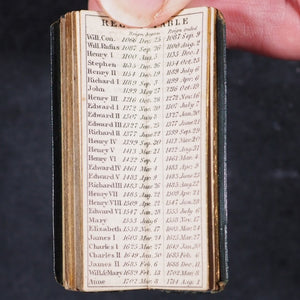 REGAL TABLE
Reigns began Reigns ended
Will. Con. 1066 Dec. 25 1087 Sep. 9
Will. Rufus 1087 Sep. 26 1100 Aug. 2
Henry I 1100 Aug. 5 1135 Dec. 1
Stephen 1135 Dec. 26 1154 Oct. 25
Henry II 1154 Dec. 19 1189 July 6
Richard I 1189 Sep. 3 1199 Apr. 6
John 1199 May 27 1216 Oct. 19
Henry III 1216 Oct. 28 1272 Nov. 16
Edward I 1272 Nov. 20 1307 July 7
Edward II 1307 July 8 1327 Jan. 20
Edward III 1327 Jan. 25 1377 June 21
Richard II 1377 June 22 1399 Sep. 29
Henry IV 1399 Sep. 30 1413 Mar. 20
Henry V 1413 Mar. 21 1422 Aug. 31
Henry VI 1422 Sep. 1 1461 Mar. 4
Edward IV 1461 Mar. 4 1483 Apr. 9
Edward V 1483 Apr. 9 1483 June
Richard III 1483 June 26 1485 Aug. 22
Henry VII 1485 Aug. 22 1509 Apr. 21
Henry VIII 1509 Apr. 22 1547 Jan. 28
Edward VI 1547 Jan. 28 1553 July 6
Mary 1553 July 6 1558 Nov. 17
Elizabeth 1558 Nov. 17 1603 Mar. 24
James I 1603 Mar. 24 1625 Mar. 27
Charles I 1625 Mar. 27 1649 Jan. 30
Charles II 1649 Jan. 30 1685 Feb. 6
James II 1685 Feb. 6
Will & Mary 1689 Feb. 13 1702 Mar. 8
Anne 1702 Mar. 8 1714 Aug. 1